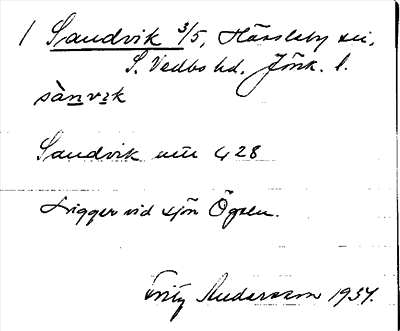 1 Sandvik 3/5, Hässleby sn,
S. Vedbo hd, Jönk. l.
sànvik
Sandvik utn 428
Ligger vid sjön Ögeln.
Fritz Andersson 1934.